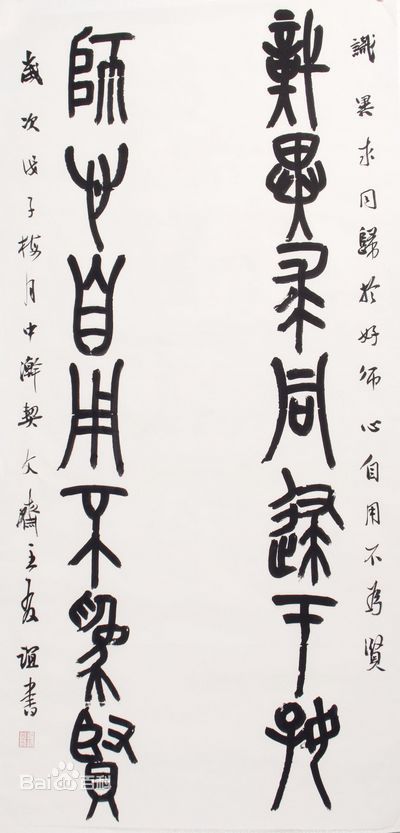 識異求同歸於好師心自用不為賢
識異求同歸于好
師心自用不為賢
歲次戊子梅月中澣契文齋主友誼書
Bai百科